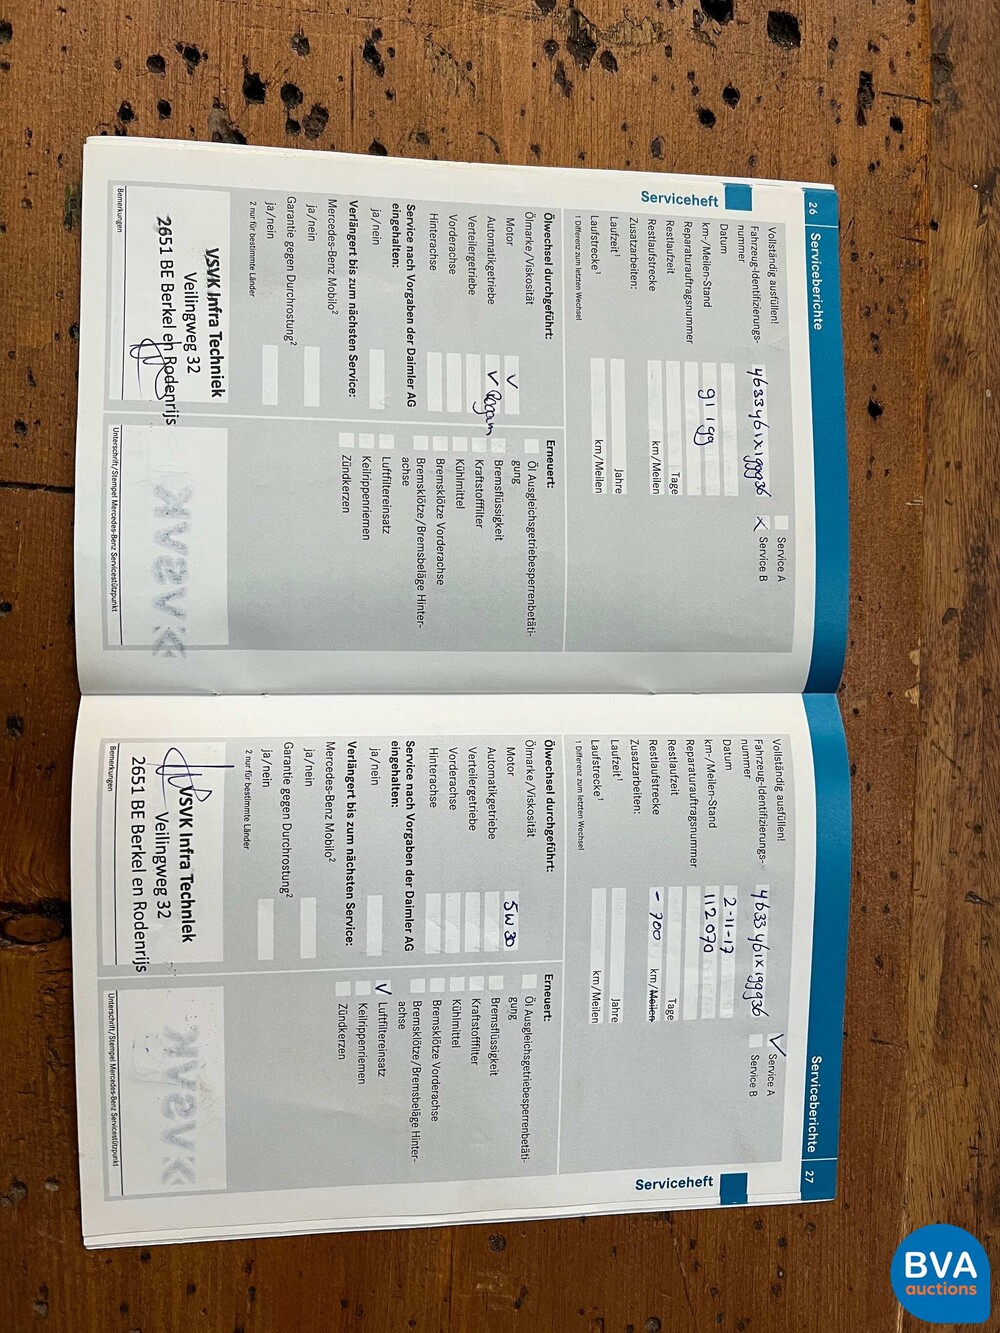 26 Serviceberichte
Serviceheft
Vollständig ausfüllen!
Fahrzeug-Identifizierungs-
nummer
4633461X199936
Service A
X Service B
Datum
km-/Meilen-Stand
91199
Reparaturauftragsnummer
Restlaufzeit
Tage
Restlaufstrecke
km/Meilen
Zusatzarbeiten:
Laufzeit¹
Jahre
Laufstrecke¹
km/Meilen
1 Differenz zum letzten Wechsel
Ölwechsel durchgeführt:
Ölmarke/Viskosität
Motor
Automatikgetriebe
Verteilergetriebe
Vorderachse
Hinterachse
Service nach Vorgaben der Daimler AG
eingehalten:
ja/nein
Verlängert bis zum nächsten Service:
Mercedes-Benz Mobilo²
ja/nein
Garantie gegen Durchrostung²
ja/nein
2 nur für bestimmte Länder
Erneuert:
Öl Ausgleichsgetriebesperrenbetäti-
gung
Bremsflüssigkeit
Kraftstofffilter
Kühlmittel
Bremsklötze Vorderachse
Bremsklötze/Bremsbeläge Hinter-
achse
Luftfiltereinsatz
Keilrippenriemen
Zündkerzen
VSVK Infra Techniek
Veilingweg 32
2651 BE Berkel en Rodenrijs
Bemerkungen
Unterschrift/Stempel Mercedes-Benz Servicestützpunkt
Serviceberichte 27
Serviceheft
Vollständig ausfüllen!
Fahrzeug-Identifizierungs-
nummer
4633461X199936
Service A
Service B
Datum
2-11-17
km-/Meilen-Stand
112070
Reparaturauftragsnummer
Restlaufzeit
Tage
Restlaufstrecke
- 700 km/Meilen
Zusatzarbeiten:
Laufzeit¹
Jahre
Laufstrecke¹
km/Meilen
1 Differenz zum letzten Wechsel
Ölwechsel durchgeführt:
Ölmarke/Viskosität
Motor
5W30
Automatikgetriebe
Verteilergetriebe
Vorderachse
Hinterachse
Service nach Vorgaben der Daimler AG
eingehalten:
ja/nein
Verlängert bis zum nächsten Service:
Mercedes-Benz Mobilo²
ja/nein
Garantie gegen Durchrostung²
ja/nein
2 nur für bestimmte Länder
Erneuert:
Öl Ausgleichsgetriebesperrenbetäti-
gung
Bremsflüssigkeit
Kraftstofffilter
Kühlmittel
Bremsklötze Vorderachse
Bremsklötze/Bremsbeläge Hinter-
achse
Luftfiltereinsatz
Keilrippenriemen
Zündkerzen
VSVK Infra Techniek
Veilingweg 32
2651 BE Berkel en Rodenrijs
Bemerkungen
Unterschrift/Stempel Mercedes-Benz Servicestützpunkt
BVA
auctions